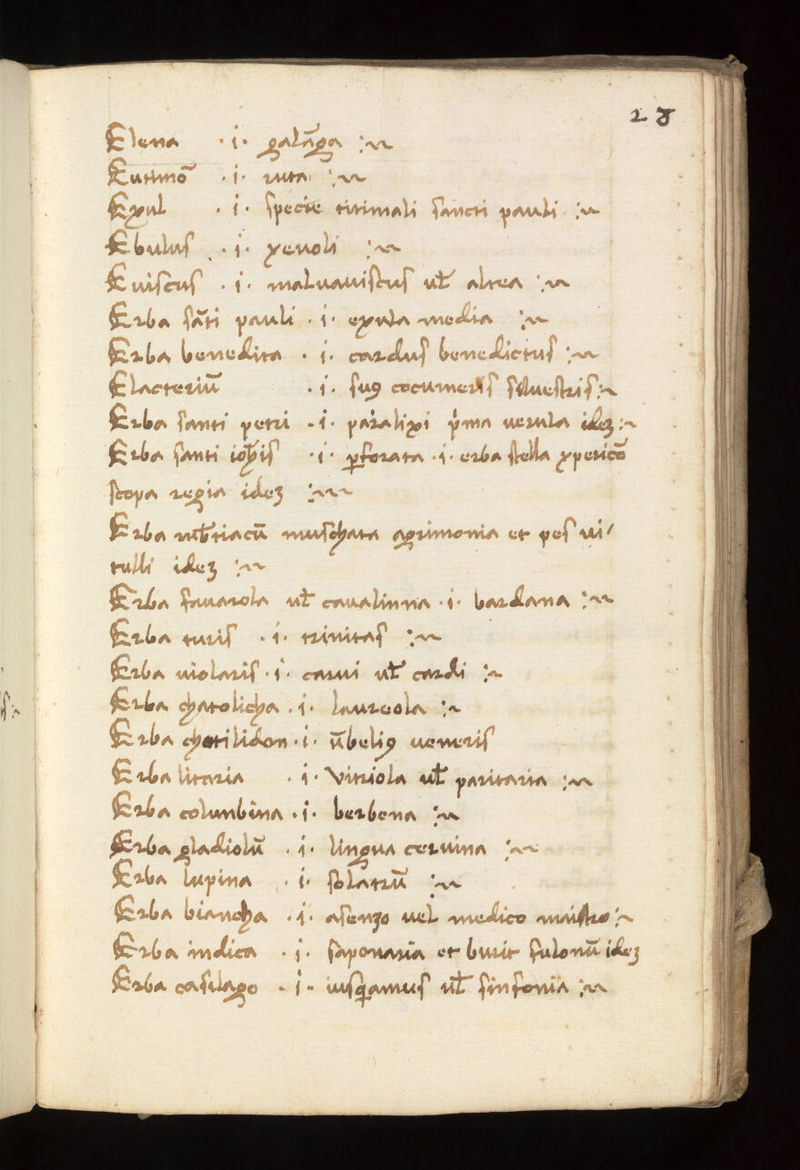 28
Elena .i. galãga :~
Eutimõ .i. ruta :~
Exul .i. specie titimali sancti pauli :~
Ebulus .i. yevoli :~
Euiscus .i. maluauiscus ul̃ altea :~
Erba sãti pauli .i. exula media :~
Erba benedita .i. cardus benedictus :~
Elacteriũ .i. suꝯ cocumeris siluestris :~
Erba santi petri .i. paralixi pͥma uerula ideʒ :~
Erba santi ioħis .i. ꝑforata .i. erba stella ypericõ
scopa regia ideʒ :~
Erba muschata agrimonia et pes ui/
tulli ideʒ :~
Erba fauarola ul̃ caualinna .i. bardana :~
Erba turis .i. trinitas :~
Erba uiolaris .i. carui ul̃ cardi :~
Erba chatolicha .i. laureola :~
Erba chotilidon .i. ũbeliꝯ ueneris
Erba litaria .i. Vitriola ul̃ paritaria :~
Erba colunbina .i. berbena :~
Erba gladiolũ .i. lingua ceruina :~
Erba lupina .i. solatrũ :~
Erba biancha .i. asenzo uel medico maistro :~
Erba indica .i. saponaria et burit fulonũ ideʒ
Erba casilago .i. iusq̃iamus ul̃ sinfonia :~